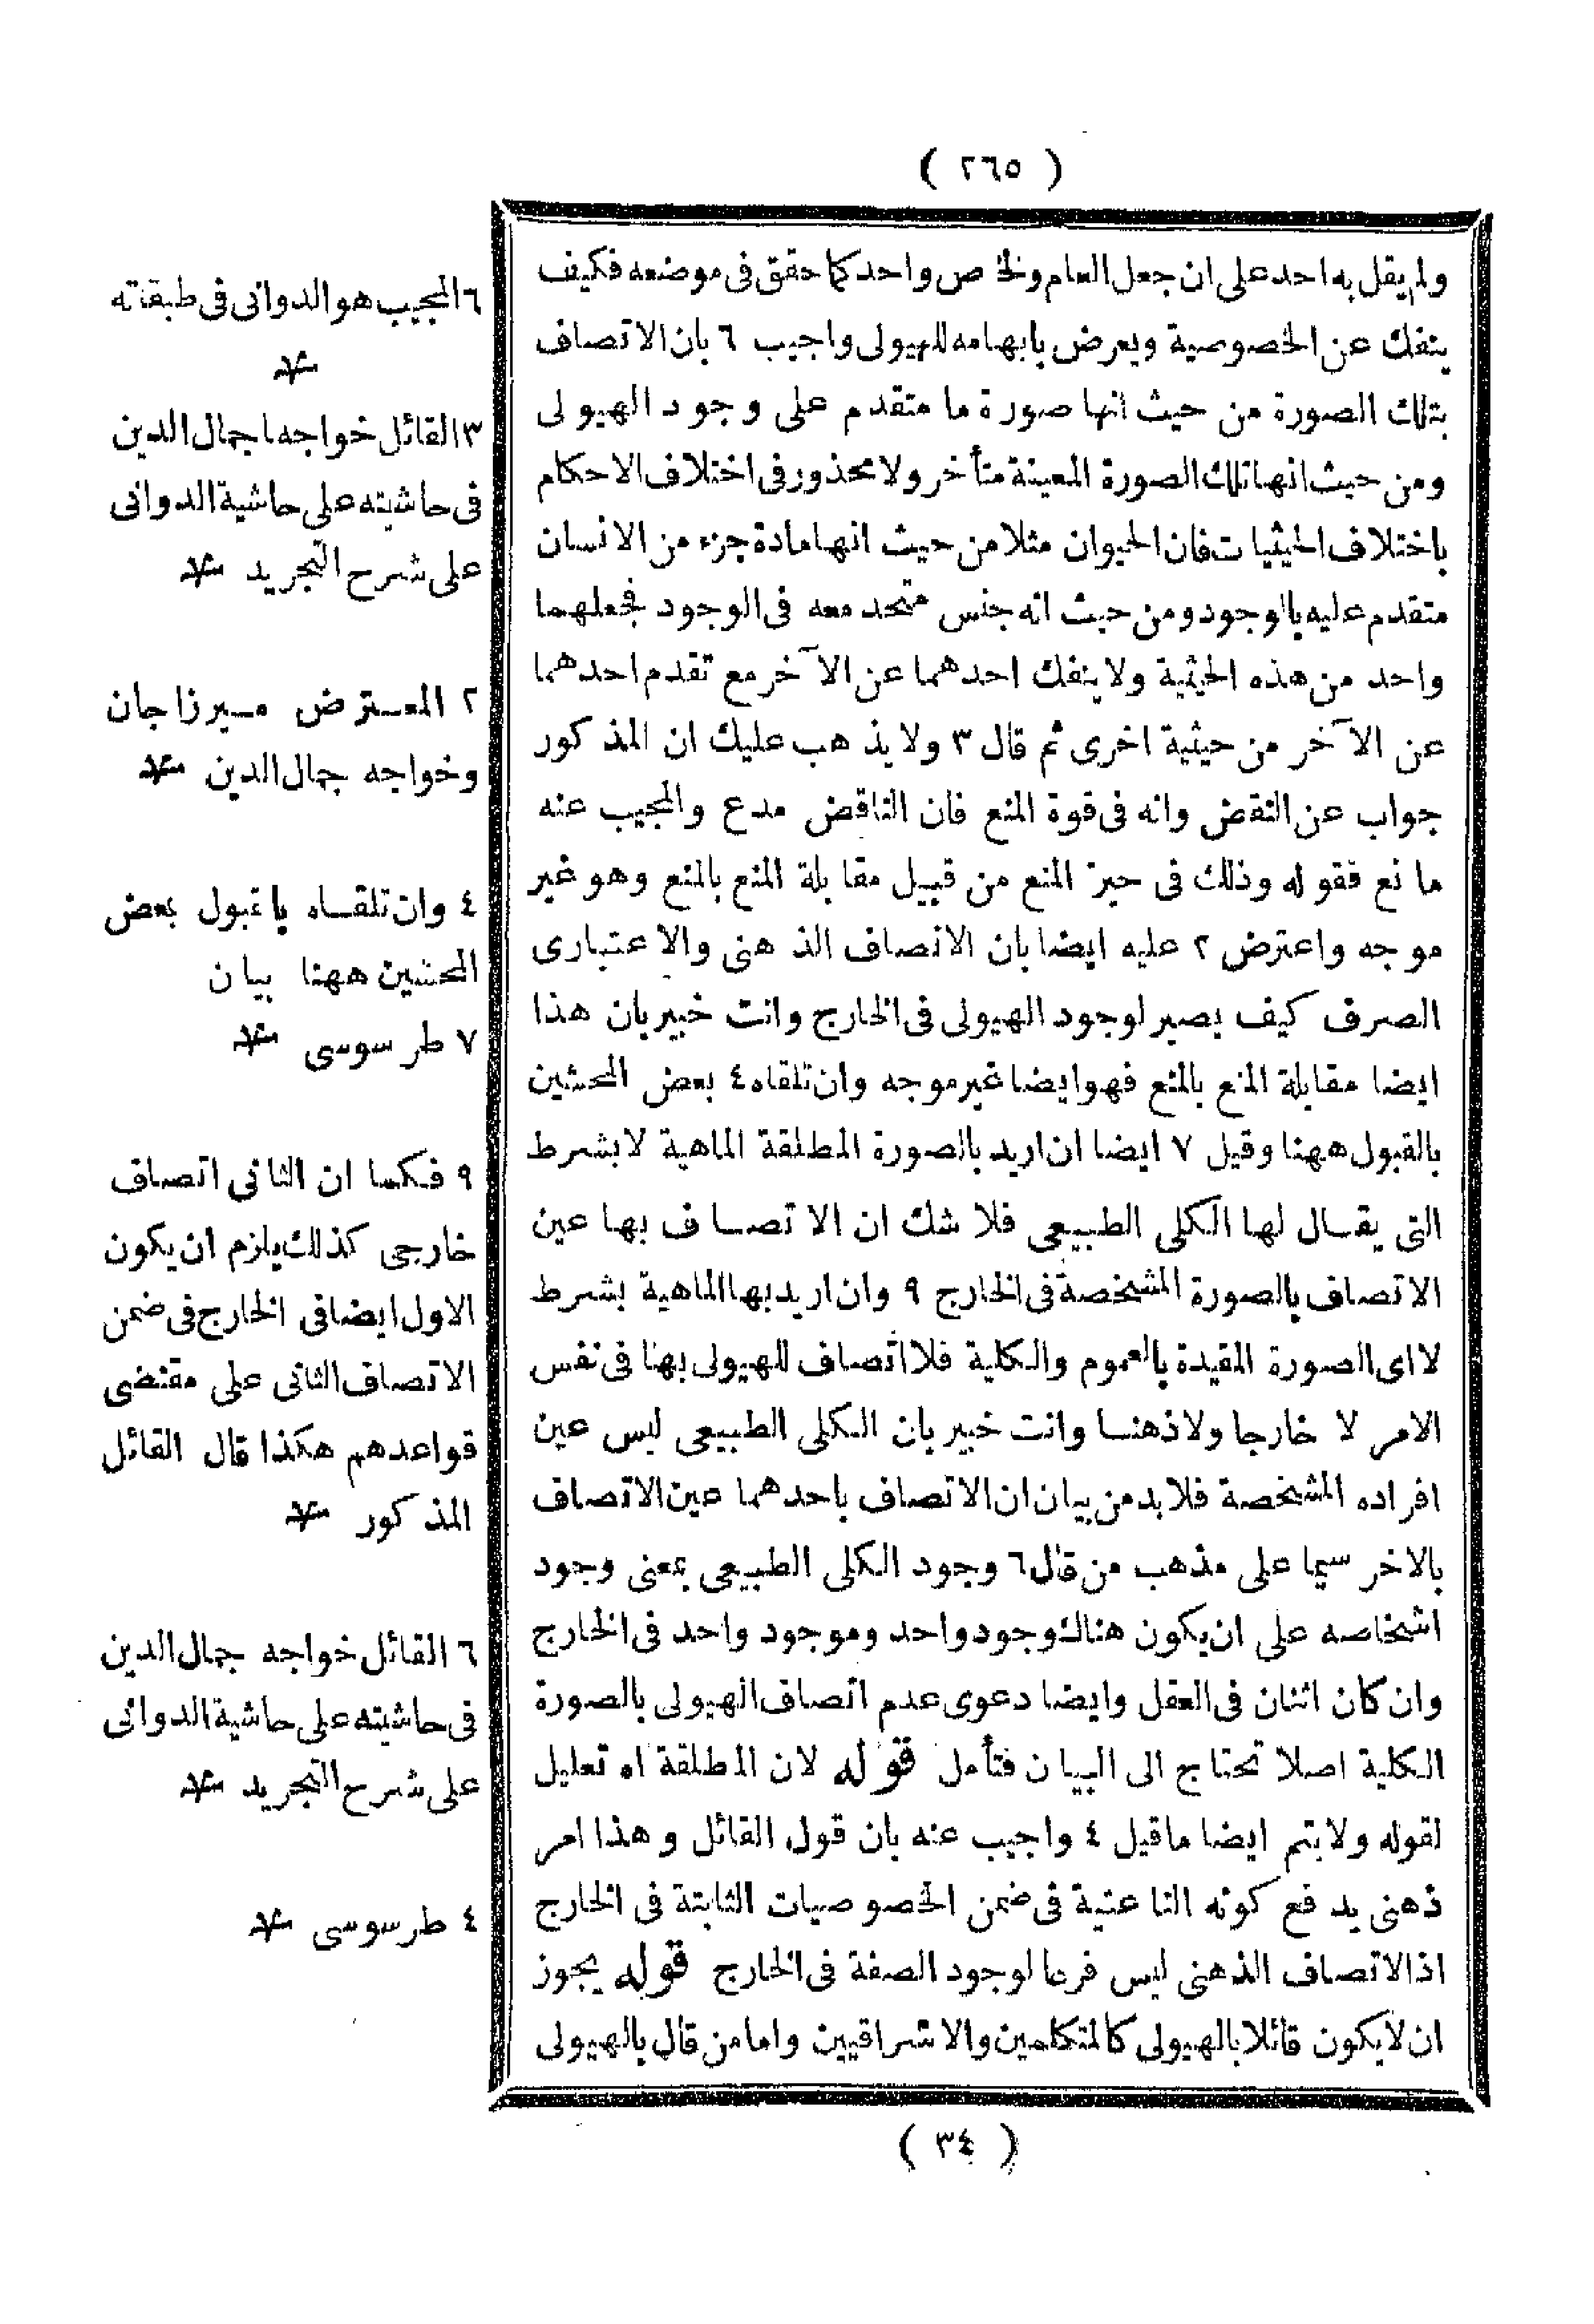 ( ٢٦٥ )
ولم يقل به احد على ان جعل العام والخاص واحد كما حقق فى موضعه فكيف
ينفك عن الخصوصية ويعرض بابهامه للهيولى واجيب ٦ بان الاتصاف
بتلك الصورة من حيث انها صورة ما متقدم على وجود الهيولى
ومن حيث انها تلك الصورة المعينة متأخر ولا محذور فى اختلاف الاحكام
باختلاف الحيثيات فان الحيوان مثلا من حيث انها مادة جزء من الانسان
متقدم عليه بالوجود ومن حيث انه جنس متحد معه فى الوجود فجعلهما
واحد من هذه الحيثية ولا ينفك احدهما عن الآخر مع تقدم احدهما
عن الآخر من حيثية اخرى ثم قال ٣ ولا يذهب عليك ان المذكور
جواب عن النقض وانه فى قوة المنع فان الناقض مدع والمجيب عنه
مانع فقوله وذلك فى حيز المنع من قبيل مقابلة المنع بالمنع وهو غير
موجه واعترض ٢ عليه ايضا بان الاتصاف الذهنى والاعتبارى
الصرف كيف يصير لوجود الهيولى فى الخارج وانت خبير بان هذا
ايضا مقابلة المنع بالمنع فهو ايضا غير موجه وان تلقاه ٤ بعض المحشين
بالقبول ههنا وقيل ٧ ايضا ان اريد بالصورة المطلقة الماهية لا بشرط
التى يقال لها الكلى الطبيعى فلا شك ان الاتصاف بها عين
الاتصاف بالصورة المشخصة فى الخارج ٩ وان اريد بها الماهية بشرط
لا اى الصورة المقيدة بالعموم والكلية فلا اتصاف للهيولى بها فى نفس
الامر لا خارجا ولا ذهنا وانت خبير بان الكلى الطبيعى ليس عين
افراده المشخصة فلا بد من بيان ان الاتصاف باحدهما عين الاتصاف
بالاخر سيما على مذهب من قال ٦ وجود الكلى الطبيعى بمعنى وجود
اشخاصه على ان يكون هناك وجود واحد وموجود واحد فى الخارج
وان كان اثنان فى العقل وايضا دعوى عدم اتصاف الهيولى بالصورة
الكلية اصلا تحتاج الى البيان فتأمل قوله لان المطلقة اه تعليل
لقوله ولا يتم ايضا ما قيل ٤ واجيب عنه بان قول القائل وهذا امر
ذهنى يدفع كونه الناعتية فى ضمن الخصوصيات الثابتة فى الخارج
اذ الاتصاف الذهنى ليس فرعا لوجود الصفة فى الخارج قوله يجوز
ان لا يكون قائلا بالهيولى كالمتكلمين والاشراقيين واما من قال بالهيولى
( ٣٤ )
٦ المجيب هو الدوانى فى طبقاته
منه
٣ القائل خواجه اجمال الدين
فى حاشيته على حاشية الدوانى
على شرح التجريد منه
٢ المعترض ميرزاجان
وخواجه جمال الدين منه
٤ وان تلقاه باقبول بعض
المحشين ههنا بيان
٧ طرسوسى منه
٩ فكما ان الثانى اتصاف
خارجى كذلك يلزم ان يكون
الاول ايضا فى الخارج فى ضمن
الاتصاف الثانى على مقتضى
قواعدهم هكذا قال القائل
المذكور منه
٦ القائل خواجه جمال الدين
فى حاشيته على حاشية الدوانى
على شرح التجريد منه
٤ طرسوسى منه